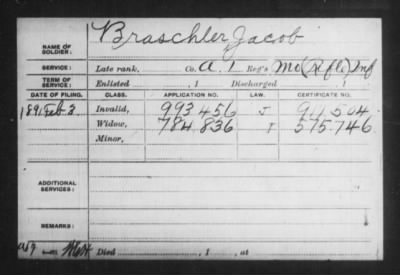 Braschler Jacob
NAME OF SOLDIER:
SERVICE: Late rank, Co. A. 1 Reg't Mo (Rifle) Inf
TERM OF SERVICE: Enlisted , 1 Discharged , 1
DATE OF FILING. CLASS. APPLICATION NO. LAW. CERTIFICATE NO.
1891 Feb 3. Invalid, 993 456 J
Widow, 784,836 575,746
Minor,
ADDITIONAL SERVICES:
REMARKS:
Died , 1 , at